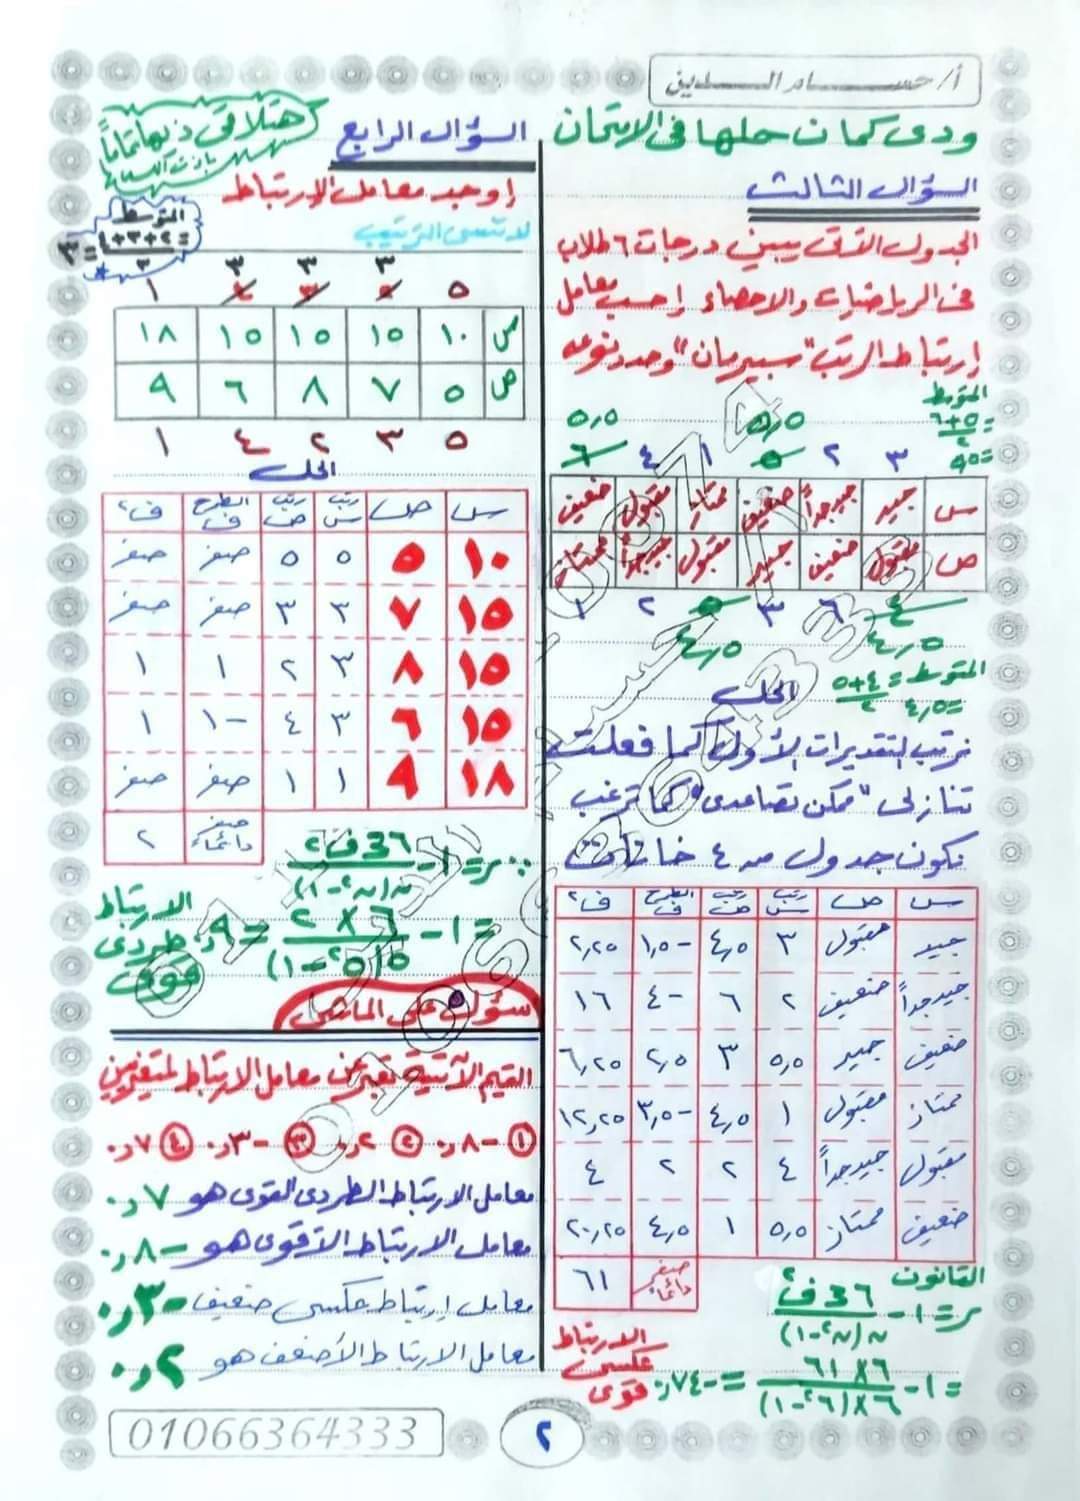 أ/حسام الدين
ودى كمان حلها فى الامتحان
السؤال الثالث
الجدول الآتى يبين درجات ٦ طلاب
فى الرياضيات والاحصاء إحسب معامل
إرتباط الرتب "سبيرمان" وحدد نوعه
المتوسط
= ٥+٦ / ٢
٥,٥ ٥,٥
٣ ٢ ٥ ١ ٤ ٦
س جيد جيد جداً ضعيف ممتاز مقبول ضعيف
ص مقبول ضعيف جيد مقبول جيد جداً ممتاز
٤ ٦ ٣ ٥ ٢ ١
٤,٥ ٤,٥
المتوسط = ٤+٥ / ٢
= ٤,٥
الحل
نرتب التقديرات الأول كما فعلت
تنازلى "ممكن تصاعدى" كما ترغب
نكون جدول من ٤ خانات
س ص رتب س رتب ص الطرح ف ف٢
جيد مقبول ٣ ٤,٥ -١,٥ ٢,٢٥
جيد جداً ضعيف ٢ ٦ -٤ ١٦
ضعيف جيد ٥,٥ ٣ ٢,٥ ٦,٢٥
ممتاز مقبول ١ ٤,٥ -٣,٥ ١٢,٢٥
مقبول جيد جداً ٤ ٢ ٢ ٤
ضعيف ممتاز ٥,٥ ١ ٤,٥ ٢٠,٢٥
صفر دائماً ٦١
القانون
ر = ١ - ٦ مجـ ف٢ / ن(ن٢-١)
= ١ - ٦×٦١ / ٦(٦٢-١) = -٠,٧٤
الارتباط
عكسى
قوى
السؤال الرابع
هتلاقى ذيها تماماً
باذن الله
إوجد معامل الإرتباط
لا تنسى الترتيب
المتوسط
= ٢+٣+٤ / ٣ = ٣
٣ ٣ ٣
٥ ٤ ٣ ٢ ١
س ١٠ ١٥ ١٥ ١٥ ١٨
ص ٥ ٧ ٨ ٦ ٩
٥ ٣ ٢ ٤ ١
الحل
س ص رتب س رتب ص الطرح ف ف٢
١٠ ٥ ٥ ٥ صفر صفر
١٥ ٧ ٣ ٣ صفر صفر
١٥ ٨ ٣ ٢ ١ ١
١٥ ٦ ٣ ٤ -١ ١
١٨ ٩ ١ ١ صفر صفر
صفر دائماً ٢
∴ ر = ١ - ٦ مجـ ف٢ / ن(ن٢-١)
= ١ - ٦×٢ / ٥(٥٢-١) = ٠,٩
الارتباط
طردى
قوى
سؤال على الماشى
القيم الآتية تعبر عن معامل الارتباط لمتغيرين
① -٠,٨ ② ٠,٢ ③ -٠,٣ ④ ٠,٧
معامل الارتباط الطردى القوى هو ٠,٧
معامل الارتباط الأقوى هو -٠,٨
معامل إرتباط عكسى ضعيف -٠,٣
معامل الارتباط الأضعف هو ٠,٢
01066364333
٢